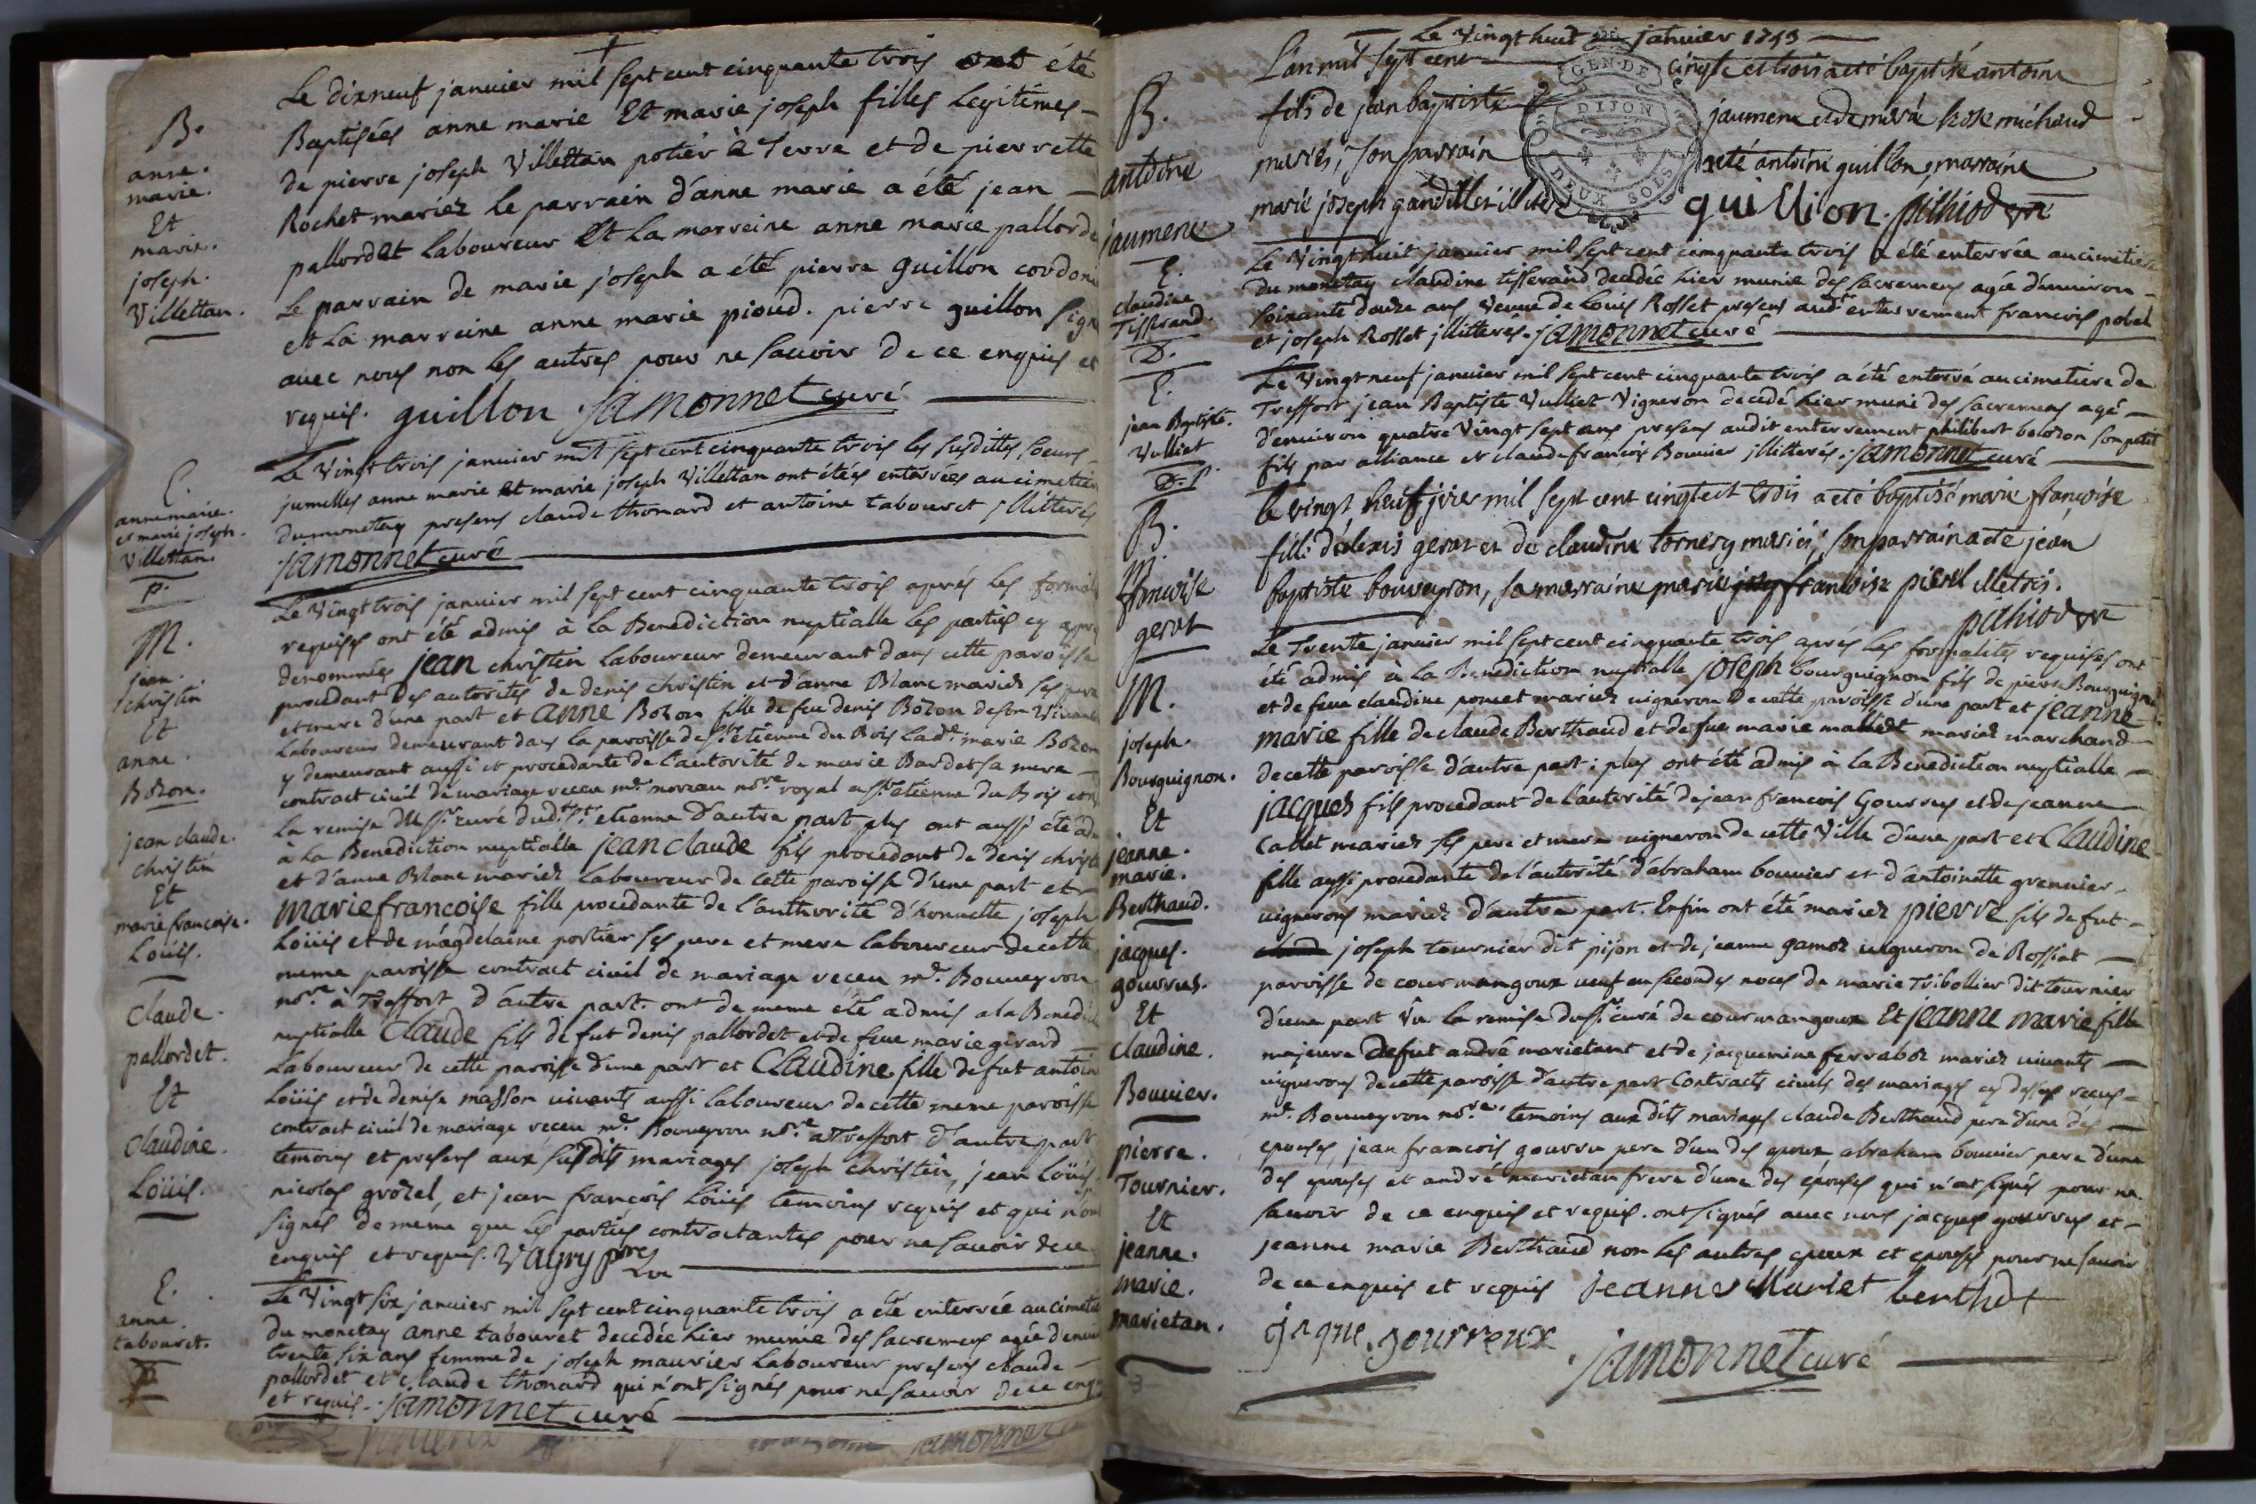 B.
anne.
marie.
Et
marie.
joseph.
Villettan.
Le dixneuf janvier mil sept cent cinquante trois ont été
Baptisées anne marie Et marie joseph filles legitimes
de pierre joseph Villettan potier à Terre et de pierrette
Rochet mariéz le parrain d'anne marie a été jean
pallordet laboureur Et la marreine anne marie pallorde
Le parrain de marie joseph a été pierre guillon cordoni
et la marreine anne marie pioud. pierre guillon signé
avec nous non les autres pour ne scavoir de ce enquis et
requis. guillon jamonnet curé
E.
anne marie.
et marie joseph.
Villettan.
P.
Le Vingt trois janvier mil sept cent cinquante trois les susdittes soeurs
jumelles anne marie et marie joseph Villettan ont étées enterrées au cimetiere
du monetay presens claude thonard et antoine tabouret jllitterés
jamonnet curé
M.
jean.
christin
Et
anne.
Bozon.
jean claude.
christin
Et
marie francoise.
Loüis.
claude.
pallordet.
Et
Claudine.
Loüis.
Le Vingt trois janvier mil sept cent cinquante trois aprés les formali
requises ont été admis à la Benediction nuptialle les parties cy apres
denommées jean christin laboureur demeurant dans cette paroisse
procedant des autorités de denis christin et d'anne Blanc mariéz ses pere
et mere d'une part et anne Bozon fille de feu denis Bozon de son vivant
Laboureur demeurant dans la paroisse de st etienne du Bois lad.e marie Bozon
y demeurant aussi et procedante de l'autorité de marie Bardet sa mere
contract civil de mariage receu me. moreau nore. royal a st etienne du Bois et vu
la remise du sr. curé dud.t st. etienne d'autre part plus ont aussi été adm
à la Benediction nuptialle jean claude fils procedant de denis christin
et d'anne Blanc mariéz laboureur de cette paroisse d'une part et
marie francoise fille procedante de l'authorité d'honnette joseph
Loüis et de magdelaine portier ses pere et mere laboureur de cette
meme paroisse contract civil de mariage receu me. Bouveyron
nore. à Treffort d'autre part. ont de meme été admis a la Benedict
nuptialle Claude fils de fut denis pallordet et de feue marie girard
Laboureur de cette paroisse d'une part et Claudine fille de fut antoine
Loüis et de denise masson vivants aussi laboureur de cette meme paroisse
contract civil de mariage receu me. Bouveyron nore. a Treffort d'autre part
temoins et presens aux susdits mariages joseph christin, jean Loüis
nicolas grozel, et jean francois Loüis temoins requis et qui n'ont
signés de meme que les parties contractantes pour ne scavoir de ce
enquis et requis. Vaugry ptre
E.
anne.
tabouret.
P
Le Vingt six janvier mil sept cent cinquante trois a été enterrée au cimetiere
du monetay anne tabouret decedée hier munie des sacremens agée d'envir
trente six ans femme de joseph maurier Laboureur presens claude
pallordet et claude thonard qui n'ont signés pour ne scavoir de ce enqu
et requis. jamonnet curé
Le Vingt huit janvier 1753
B.
antoine
jaumene
L'an mil sept cent cinqte et trois a eté baptisé antoine
fils de jean baptiste jaumene et de marie rose michaud
mariés; son parrain a eté antoine guillon, marraine
marie joseph gandillet illiteré quillion. pithiod vic
GEN. DE
DIJON
DEUX SOLS
E.
claudine
Tisserand.
D.
Le Vingt huit janvier mil sept cent cinquante trois a été enterrée au cimetiere
du monetay claudine tisserand decedée hier munie des sacremens agée d'environ
soixante douze ans veuve de Louis Rosset presens aud.t enterrement francois pobel
et joseph Rosset jllitterés. jamonnet curé
E.
jean Baptiste.
Vulliet
D. P.
Le Vingt neuf janvier mil sept cent cinquante trois a été enterré au cimetiere de
Treffort jean Baptiste Vulliet Vigneron decedé hier muni des sacremens agé
d'environ quatre Vingt sept ans presens audit enterrement philibert bolozon son petit
fils par alliance et claude francois Bouvier jllitterés. jamonnet curé
B.
m.
francoise
gerat
le vingt neuf jvier mil sept cent cinqte et trois a eté baptisé marie françoise
fille d'alexis gerat et de claudine tornery mariés; son parrain a eté jean
baptiste bouveyron, sa marraine marie francoise pierel illetrés.
pithiod vic
M.
joseph.
Bourguignon.
Et
jeanne.
marie.
Berthaud.
jacques.
gourrus.
Et
claudine.
Bouvier.
pierre.
Tournier.
Et
jeanne.
marie.
marietan.
Le Trente janvier mil sept cent cinquante trois aprés les formalités requises ont
été admis à la Benediction nuptialle joseph bourguignon fils de pierre Bourguignon
et de feue claudine poncet mariéz vigneron de cette paroisse d'une part et jeanne
marie fille de claude Berthaud et de fue marie mallet mariéz marchand
de cette paroisse d'autre part: plus ont été admis à la Benediction nuptialle
jacques fils procedant de l'autorité de jean francois Gourrus et de jeanne
Callet mariéz ses pere et mere vigneron de cette Ville d'une part et Claudine
fille aussi procedante de l'autorité d'abraham bouvier et d'antoinette grennier
vignerons mariéz d'autre part. Enfin ont été mariéz pierre fils de fut
joseph tournier dit pijon et de jeanne gamoz vigneron de Rossiat
paroisse de courmangoux veuf en secondes noces de marie Tribollier dit tournier
d'une part Vû la remise du sr. curé de courmangoux Et jeanne marie fille
majeure defut andré marietant et de jacquemine ferraboz mariéz vivants
vignerons de cette paroisse d'autre part Contracts civils des mariages cy dessus receus
me. Bouveyron nore. temoins aux dits mariages claude Berthaud pere d'une des
epouses, jean francois gourru pere d'un des epoux abraham bouvier pere d'une
des epouses et andré marietan frere d'une des epouses qui n'ont signés pour ne
scavoir de ce enquis et requis. ont signés avec nous jacques gourrus et
jeanne marie Berthaud non les autres epoux et epouses pour ne scavoir
de ce enquis et requis jeanne Mariet berthot
jaque gourreux
jamonnet curé